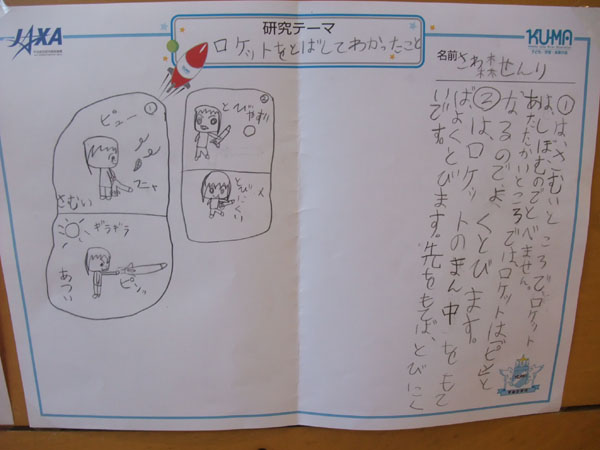 JAXA
研究テーマ
ロケットをとばしてわかったこと
KU-MA
名前 さわ森せんり
①は、さむいところで、ロケット
は、しぼむのでとべません。
あたたかいところでは、ロケットは「ピン」と
なるのでよくとびます。
②は、ロケットのまん中をもて
ば、よくとびます。先をもてば、とびにく
いです。
①
ビュー
フニャ
さむい
ギラギラ
あつい
ピンッ
②
とびやすい
とびにくい